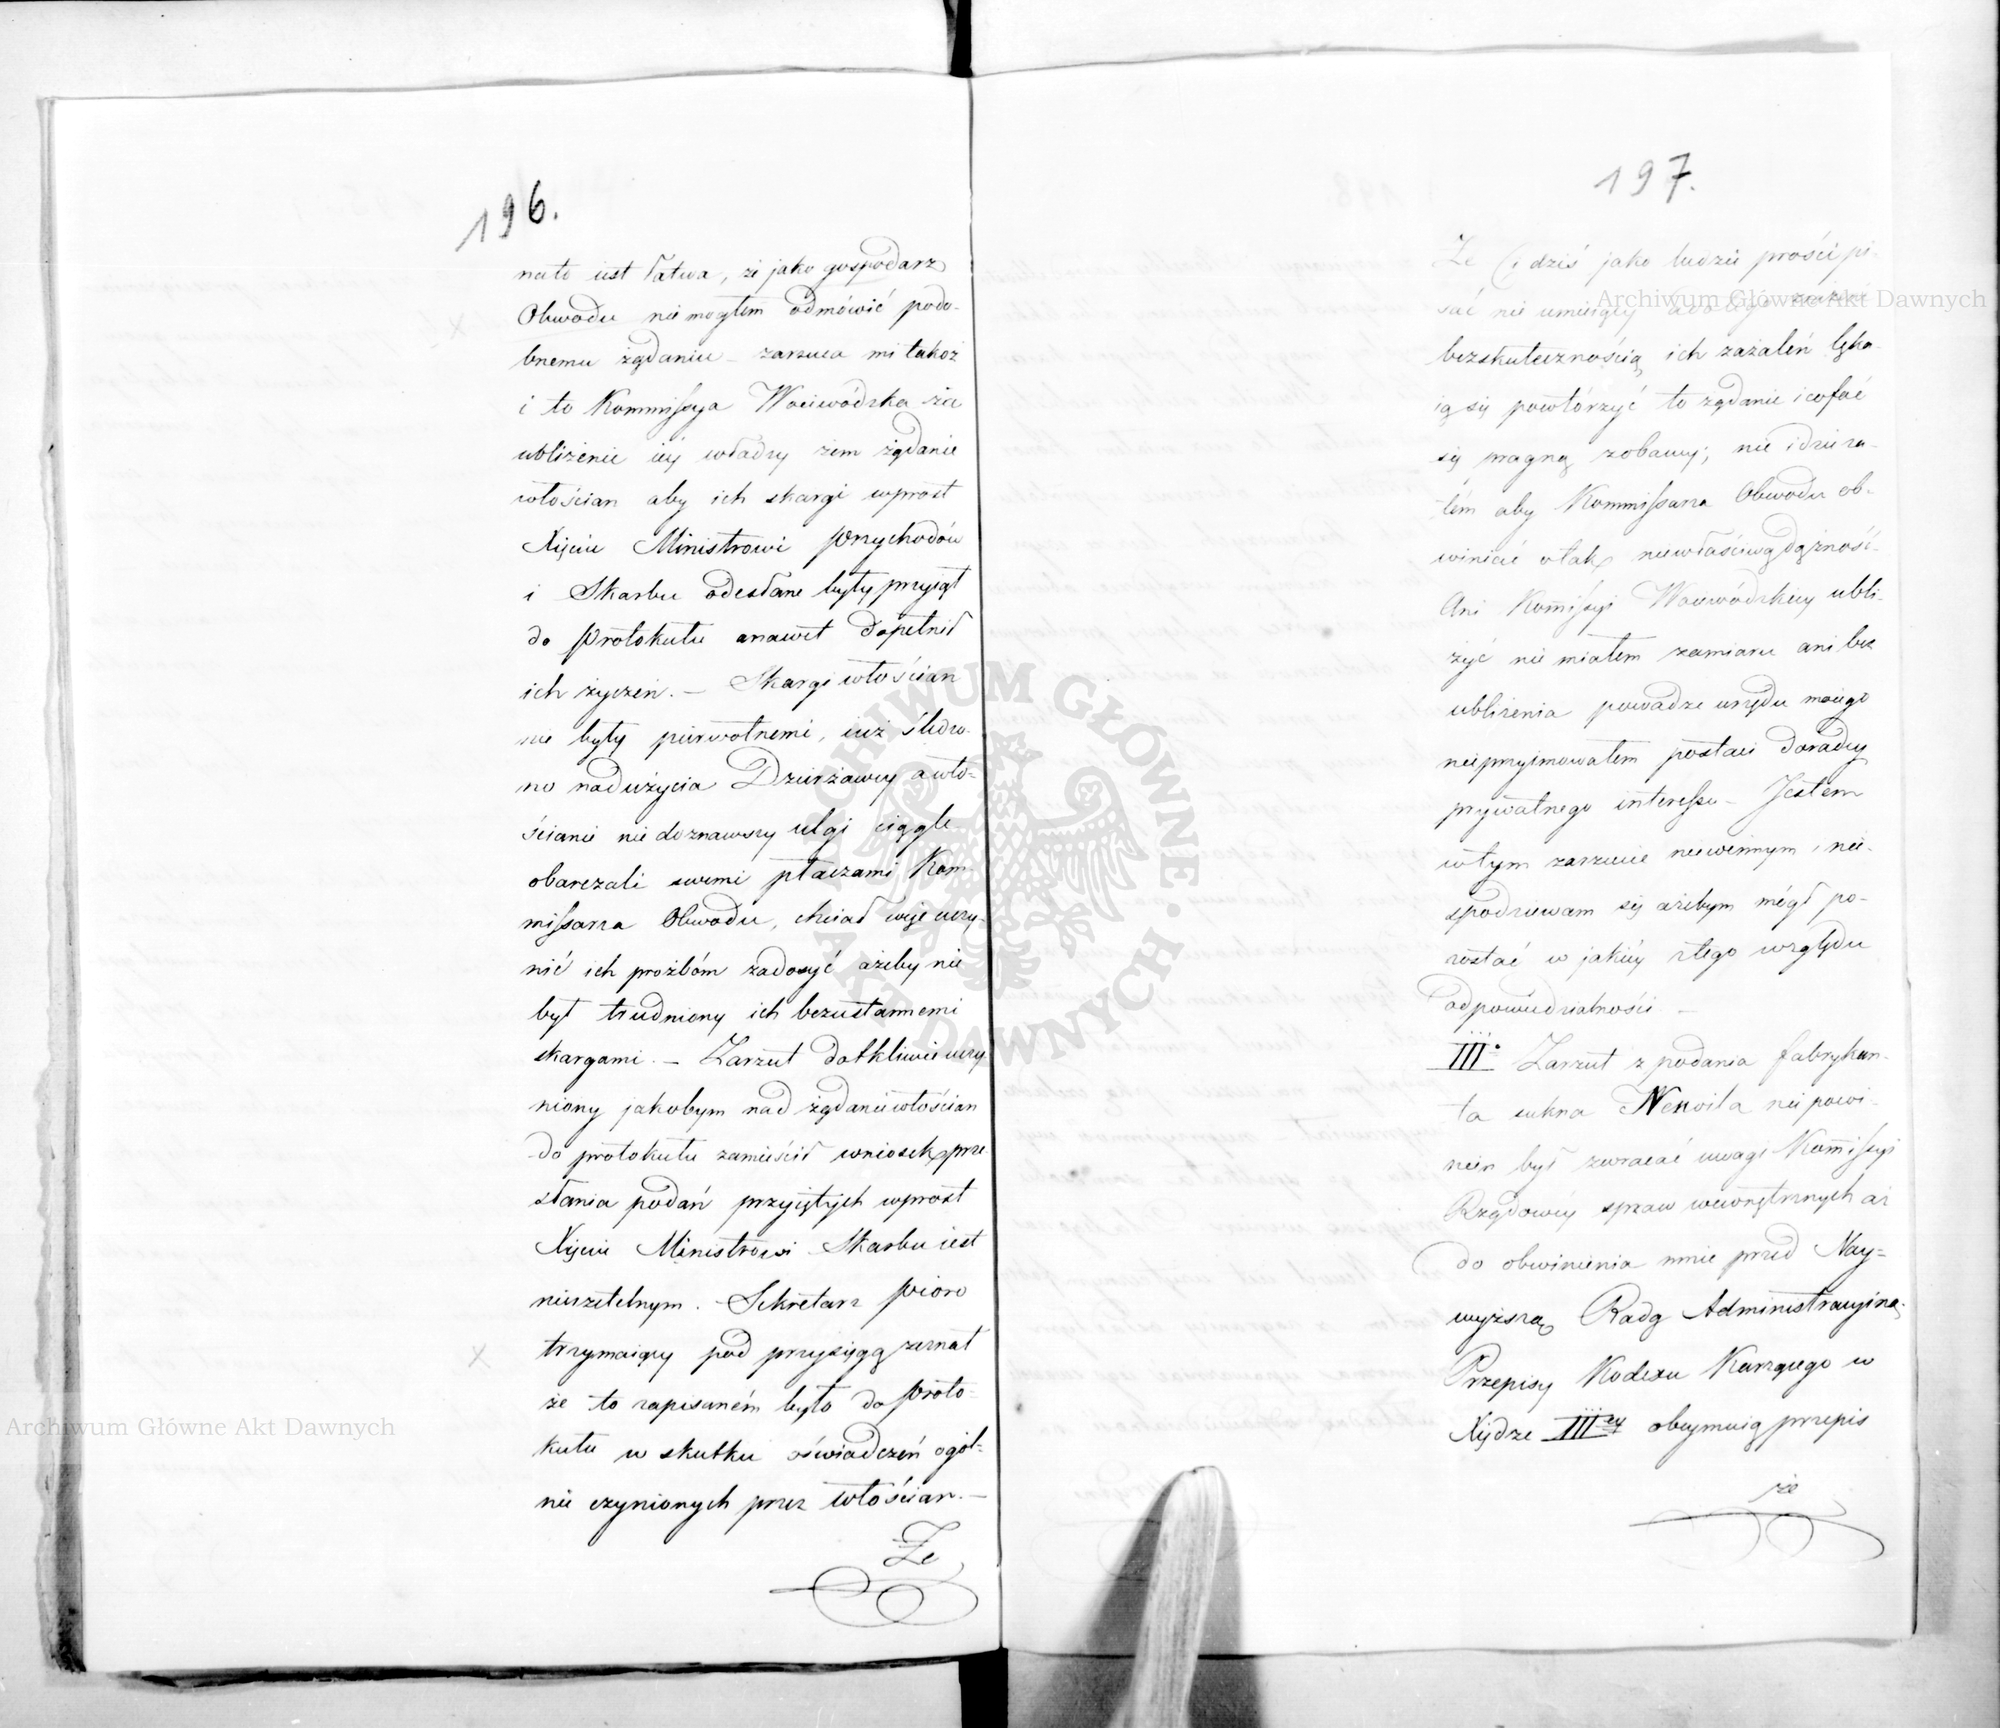 196.
na to iest łatwa, że jako gospodarz
Obwodu nie mogłem odmówić podo-
bnemu żądaniu – zarzuca mi także
i to Kommissya Woiewódzka za
ubliżenie iey władzy żem żądanie
włościan aby ich skargi wprost
Xięciu Ministrowi Przychodów
i Skarbu odesłane były przyiął
do Protokułu a nawet dopełnił
ich życzeń. – Skargi włościan
nie były pierwotnemi, iuż śledzo-
no nadużycia Dzierżawcy a wło-
ścianie nie doznawszy ulgi ciągle
obarczali swemi płaczami Kom-
missarza Obwodu, chciał więc uczy-
nić ich prożbóm zadosyć ażeby nie
był trudniony ich bezustannemi
skargami. – Zarzut dotkliwie uczy-
niony jakobym nad żądanie włościan
do protokułu zamieścił wniosek prze-
słania podań przyiętych wprost
Xięciu Ministrowi Skarbu iest
nierzetelnym. – Sekretarz pióro
trzymaiący pod przysięgą zeznał
że to zapisaném było do Proto-
kułu w skutku oświadczeń ogól-
nie czynionych przez włościan. –
Ze
197.
Ze Ci dziś jako ludzie prości pi-
sać nie umieiący
bezskutecznością ich zażaleń lęka-
ią się powtórzyć to żądanie i cofać
się pragną z obawy; nie idzie za-
tém aby Kommissarza Obwodu ob-
winiać o tak niewłaściwą dążność.
Ani Kommissyi Woiewódzkiey ubli-
żyć nie miałem zamiaru ani bez
ubliżenia powadze urzędu moiego
nie przyimowałem postaci doradcy
prywatnego interessu – Jestem
w tym zarzucie niewinnym i nie-
spodziewam się ażebym mógł po-
zostać w jakiéy z tego względu
odpowiedzialności –
III° Zarzut z podania fabrykan-
ta sukna Nenwita nie powi-
nien był zwracać uwagi Kommissyi
Rządowéy spraw wewnętrznych aż
do obwinienia mnie przed Nay-
wyższą Radą Administracyiną.
Przepisy Kodexu Karzącego w
Xiędze III<sup>ey</sup> obeymuią przepis
że
Archiwum Główne Akt Dawnych
Archiwum Główne Akt Dawnych
ARCHIWUM GŁÓWNE AKT DAWNYCH